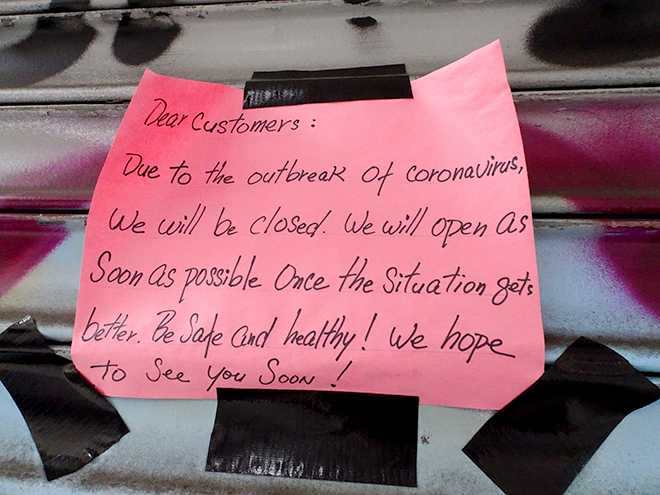 Dear Customers:
Due to the outbreak of coronavirus,
We will be closed. We will open as
Soon as possible Once the Situation gets
better. Be Safe and healthy! We hope
to See You Soon!